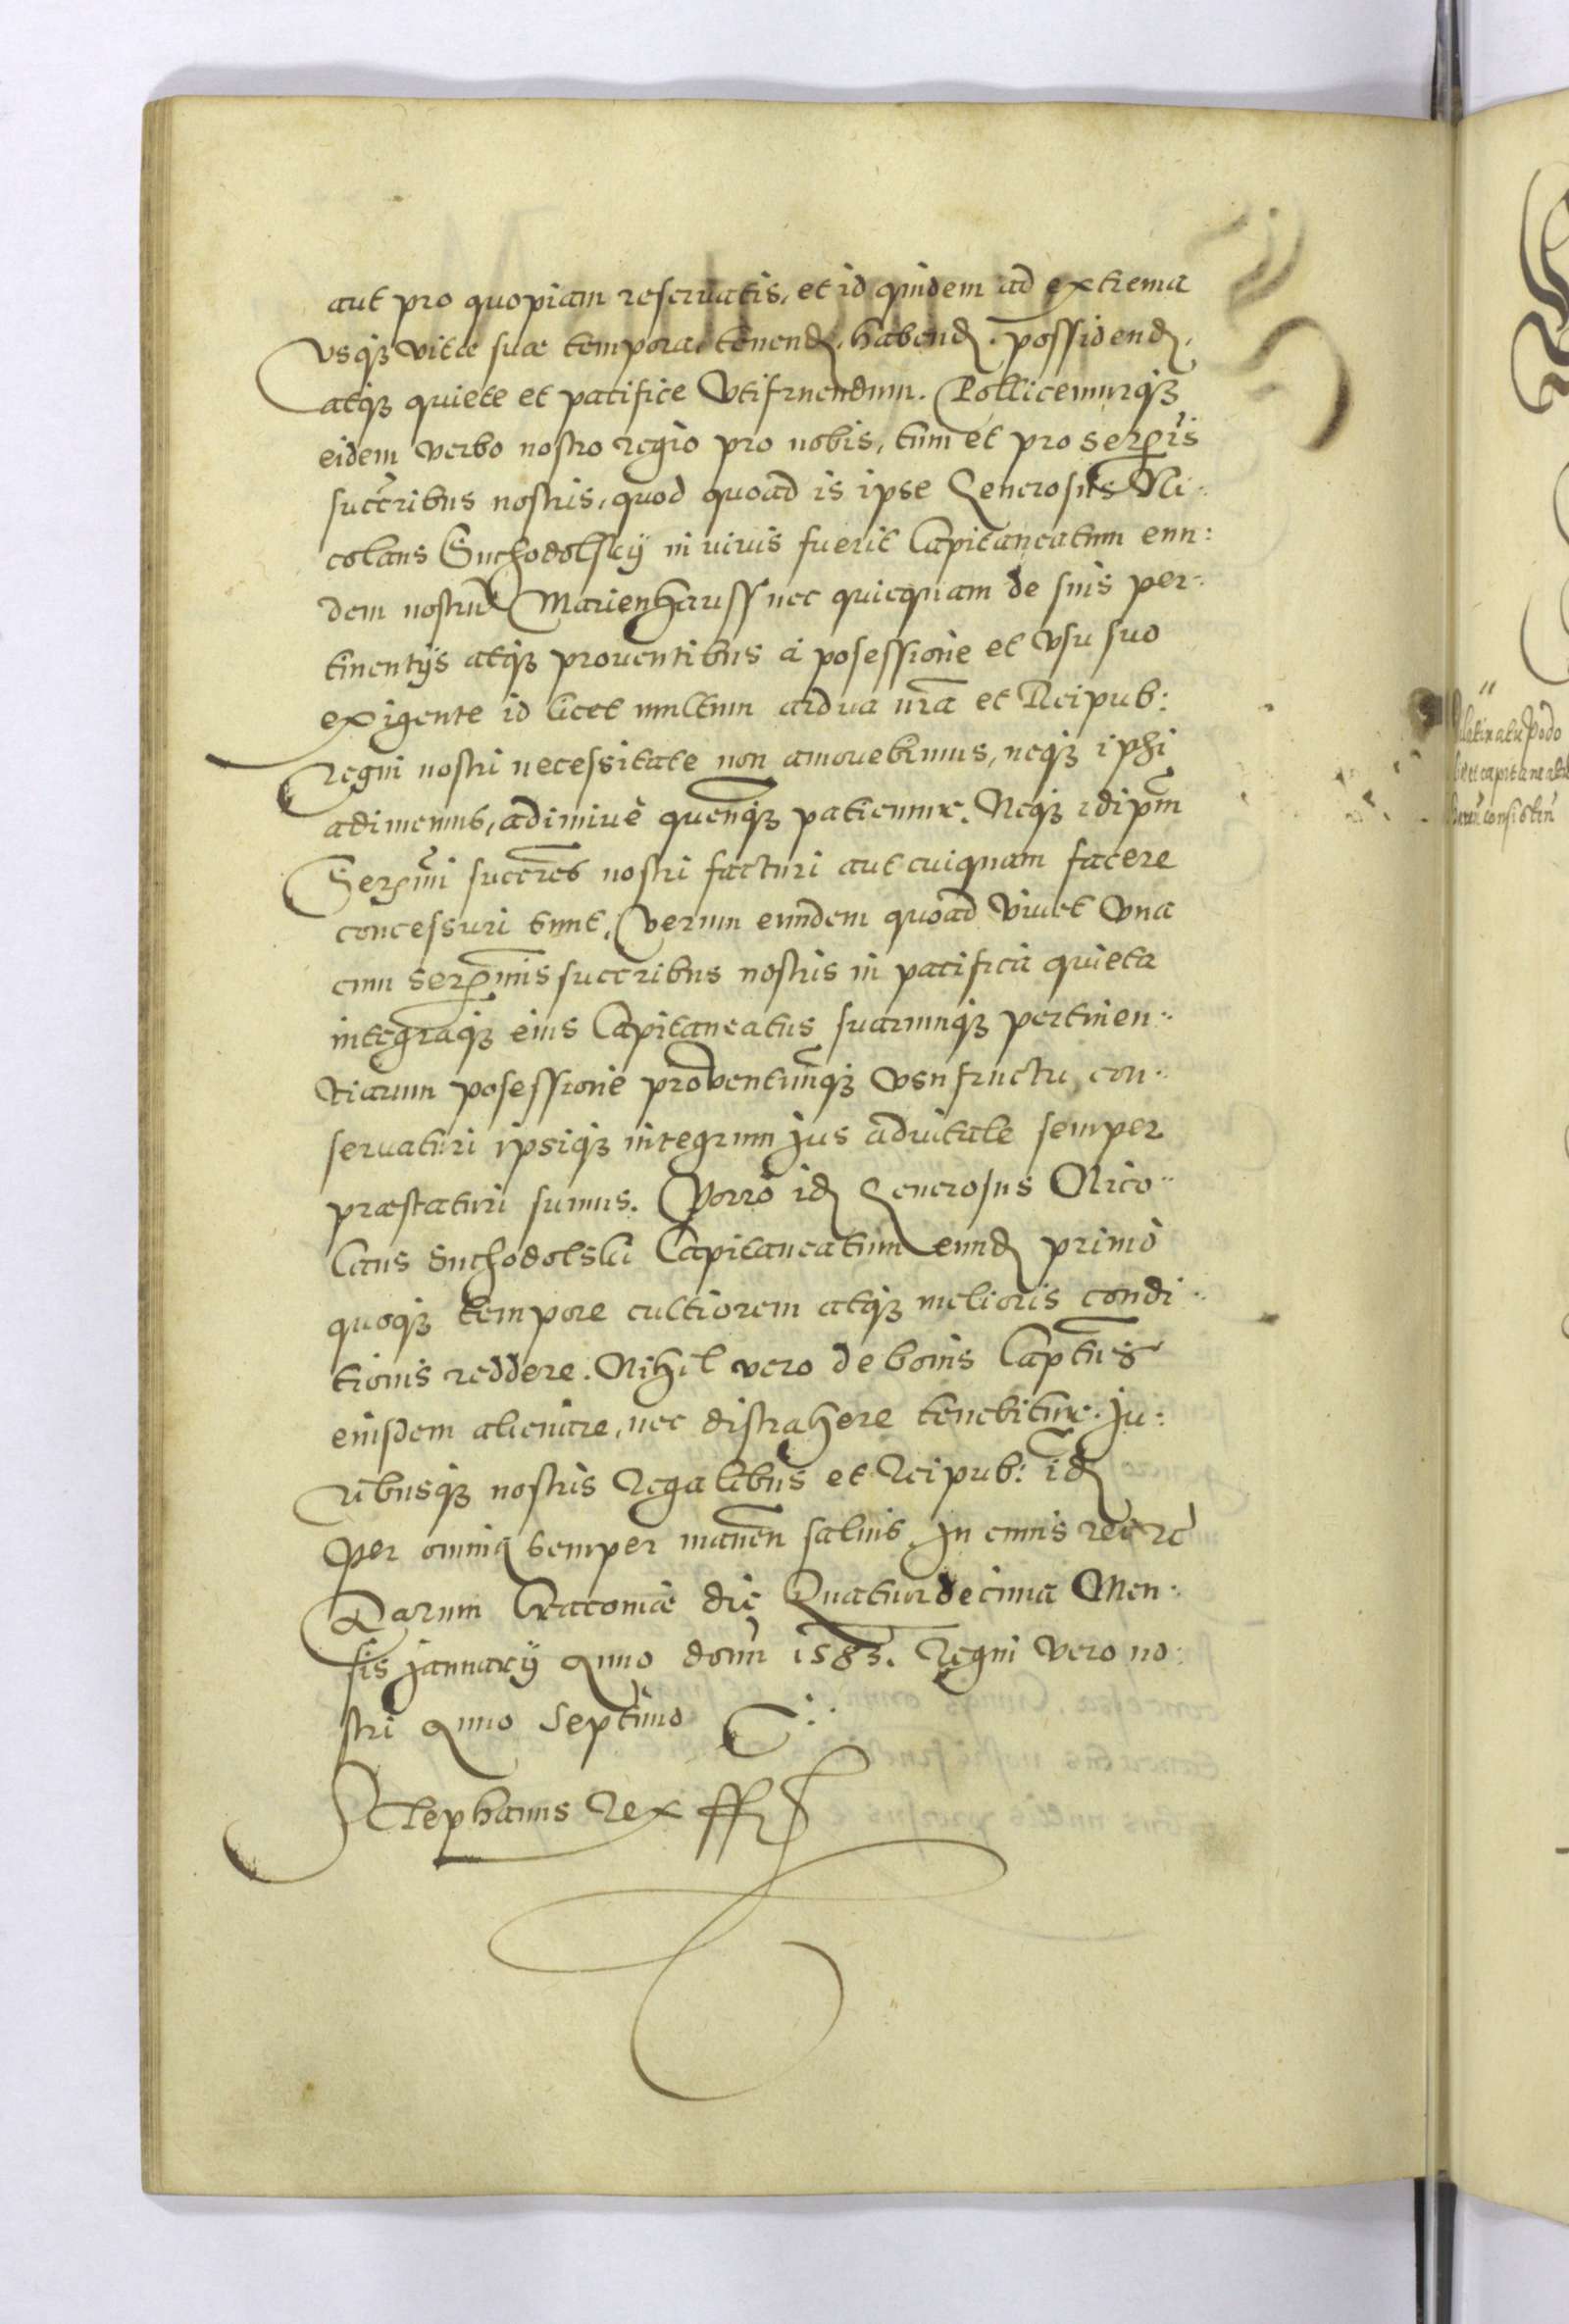 aut pro quopiam reseruatis, et id quidem ad extrema
vsqꝫ vitæ suæ tempora tenendꝭ. habendꝭ. possidendꝭ.
atqꝫ quiete et pacifice Vtifruendum. Pollicemurqꝫ
eidem verbo nostro regio pro nobis, tum et pro serꝑis
succribus nostris, quod quoad is ipse Generosus Ni-
colaus Suchodolsky in viuis fuerit Capitaneatum eun:
dem nostrũ Marienhauss nec quicquam de suis per-
tinentijs atqꝫ prouentibus à posessione et vsu suo
exigente id licet multum ardua nr̃a et Reipub:
Regni nostri necessitate non amouebimus, neqꝫ iphi
adimemus, adimiuè quenqꝫ patiemur. Neqꝫ idipm̃
Serꝑmi succr̃es nostri facturi aut cuiquam facere
concessuri sunt. Verum eundem quoad Viuet Vna
cum serꝑmis succribus nostris in pacifica quieta
integraqꝫ eius Capitaneatus suarumqꝫ pertinen-
tiarum posessione prouentuumqꝫ vsufructu, con-
seruaturi ipsiqꝫ integrum jus aduitale semper
præstaturi sumus. Porrò idꝭ Generosus Nico-
laus Suchodolski Capitaneatum eundꝭ primò
quoqꝫ tempore cultiorem atqꝫ melioris condi-
tionis reddere. Nihil vero de bonis Captus
eiusdem alienare, nec distrahere tenebitur. Ju:
ribusqꝫ nostris Regalibus et Reipub: idꝭ
per omnia semper maneñ saluis. In cuius rei rc̃
Datum Cracouiæ die Quaturdecima Men-
sis January Anno domi 1583. Regni vero no:
stri Anno Septimo
Stephanus Rex ssz
latinatu Podo
et capitaneatu
consisten̄